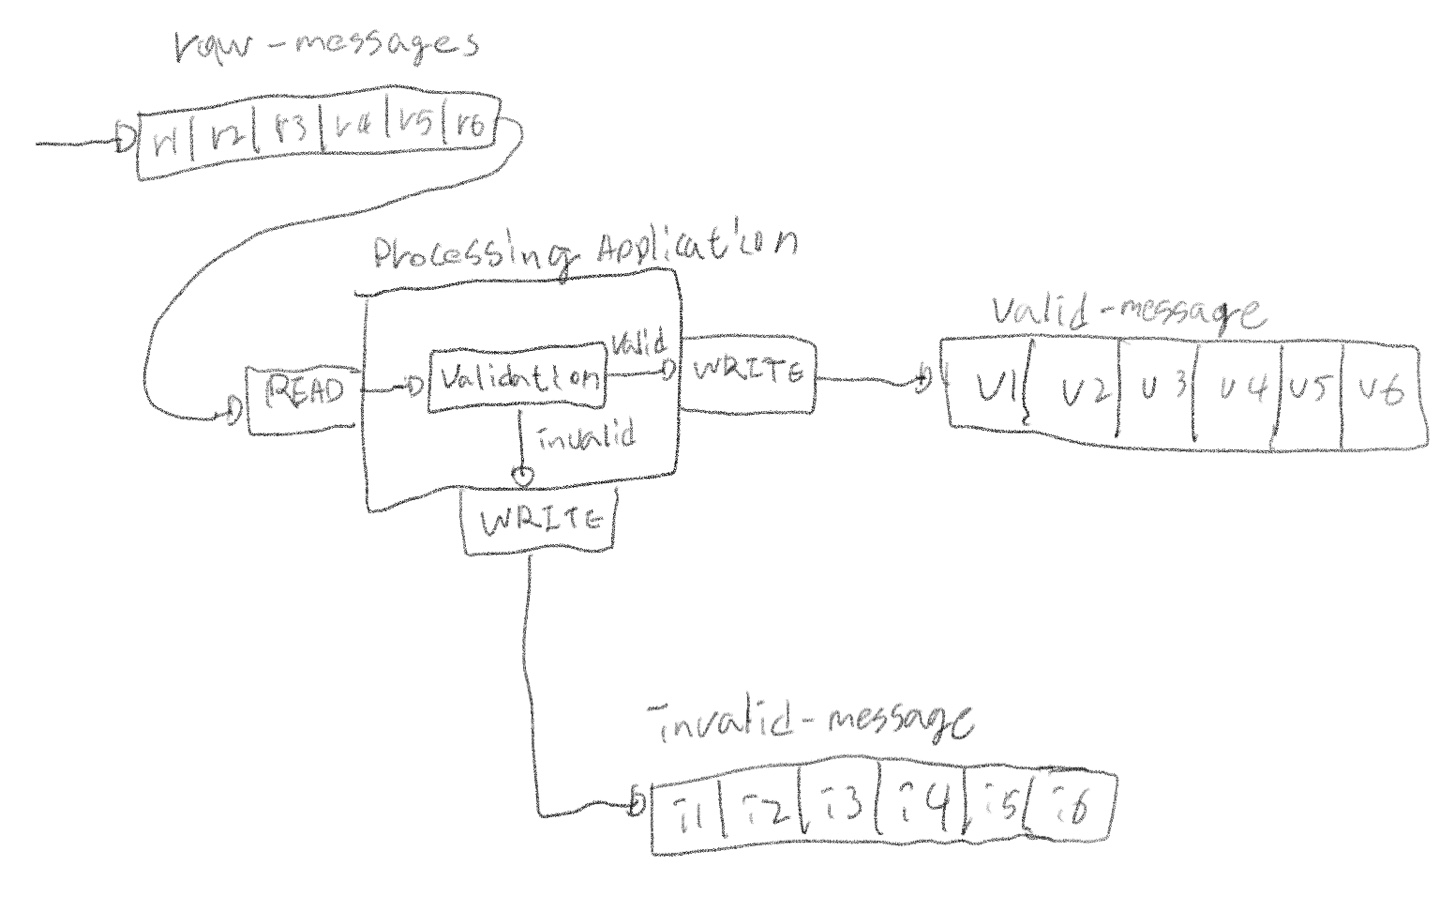 raw-messages
r1 r2 r3 r4 r5 r6
Processing Application
valid
READ Validation WRITE
invalid
WRITE
valid-message
v1 v2 v3 v4 v5 v6
invalid-message
i1 i2 i3 i4 i5 i6